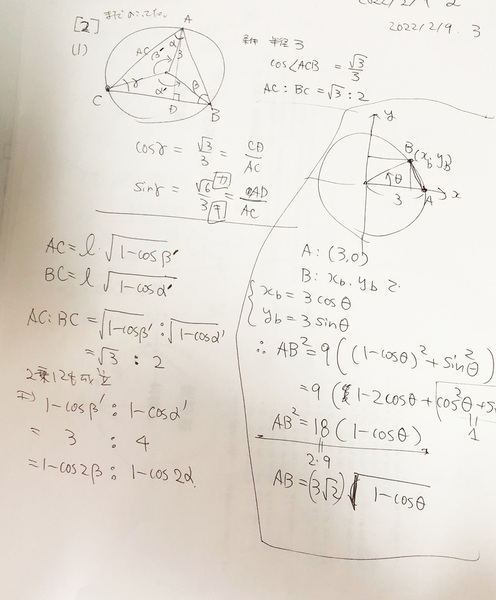 2022/2/9.3
[2]
(1)
A
AC
α
β'
3
γ
α'
β
C
D
B
半径 3
cos∠ACB = √3/3
AC : BC = √3 : 2
cosγ = √3/3 = CD/AC
sinγ = √6/3 = AD/AC
AC = l・√1-cosβ'
BC = l √1-cosα'
AC:BC = √1-cosβ' : √1-cosα'
= √3 : 2
1-cosβ' : 1-cosα'
= 3 : 4
= 1-cos2β : 1-cos2α
y
B(x_b, y_b)
θ
x
3
A
A : (3,0)
B : x_b, y_b
{ x_b = 3cosθ
y_b = 3sinθ
∴ AB² = 9((1-cosθ)² + sin²θ)
= 9(1-2cosθ + cos²θ + s
1
AB² = 18(1-cosθ)
2・9
AB = (3√2)√1-cosθ